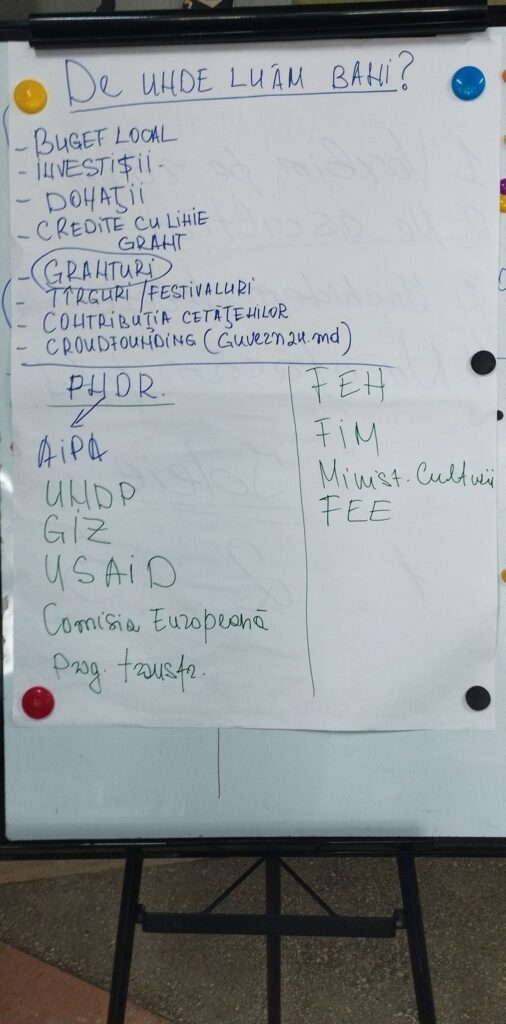 De UNDE LUĂM BANI?
- BUGET LOCAL
- INVESTIȘII.
- DONAȚII
- CREDITE CU LINIE
GRANT
- GRANTURI
- TÎRGURI/FESTIVALURI
- CONTRIBUȚIA CETĂȚENILOR
- CROUDFOUNDING (Guvern24.md)
PNDR.
AiPA
UNDP
GiZ
USAiD
Comisia Europeană
Prog. transfr.
FEN
FiM
Minist. Culturii
FEE